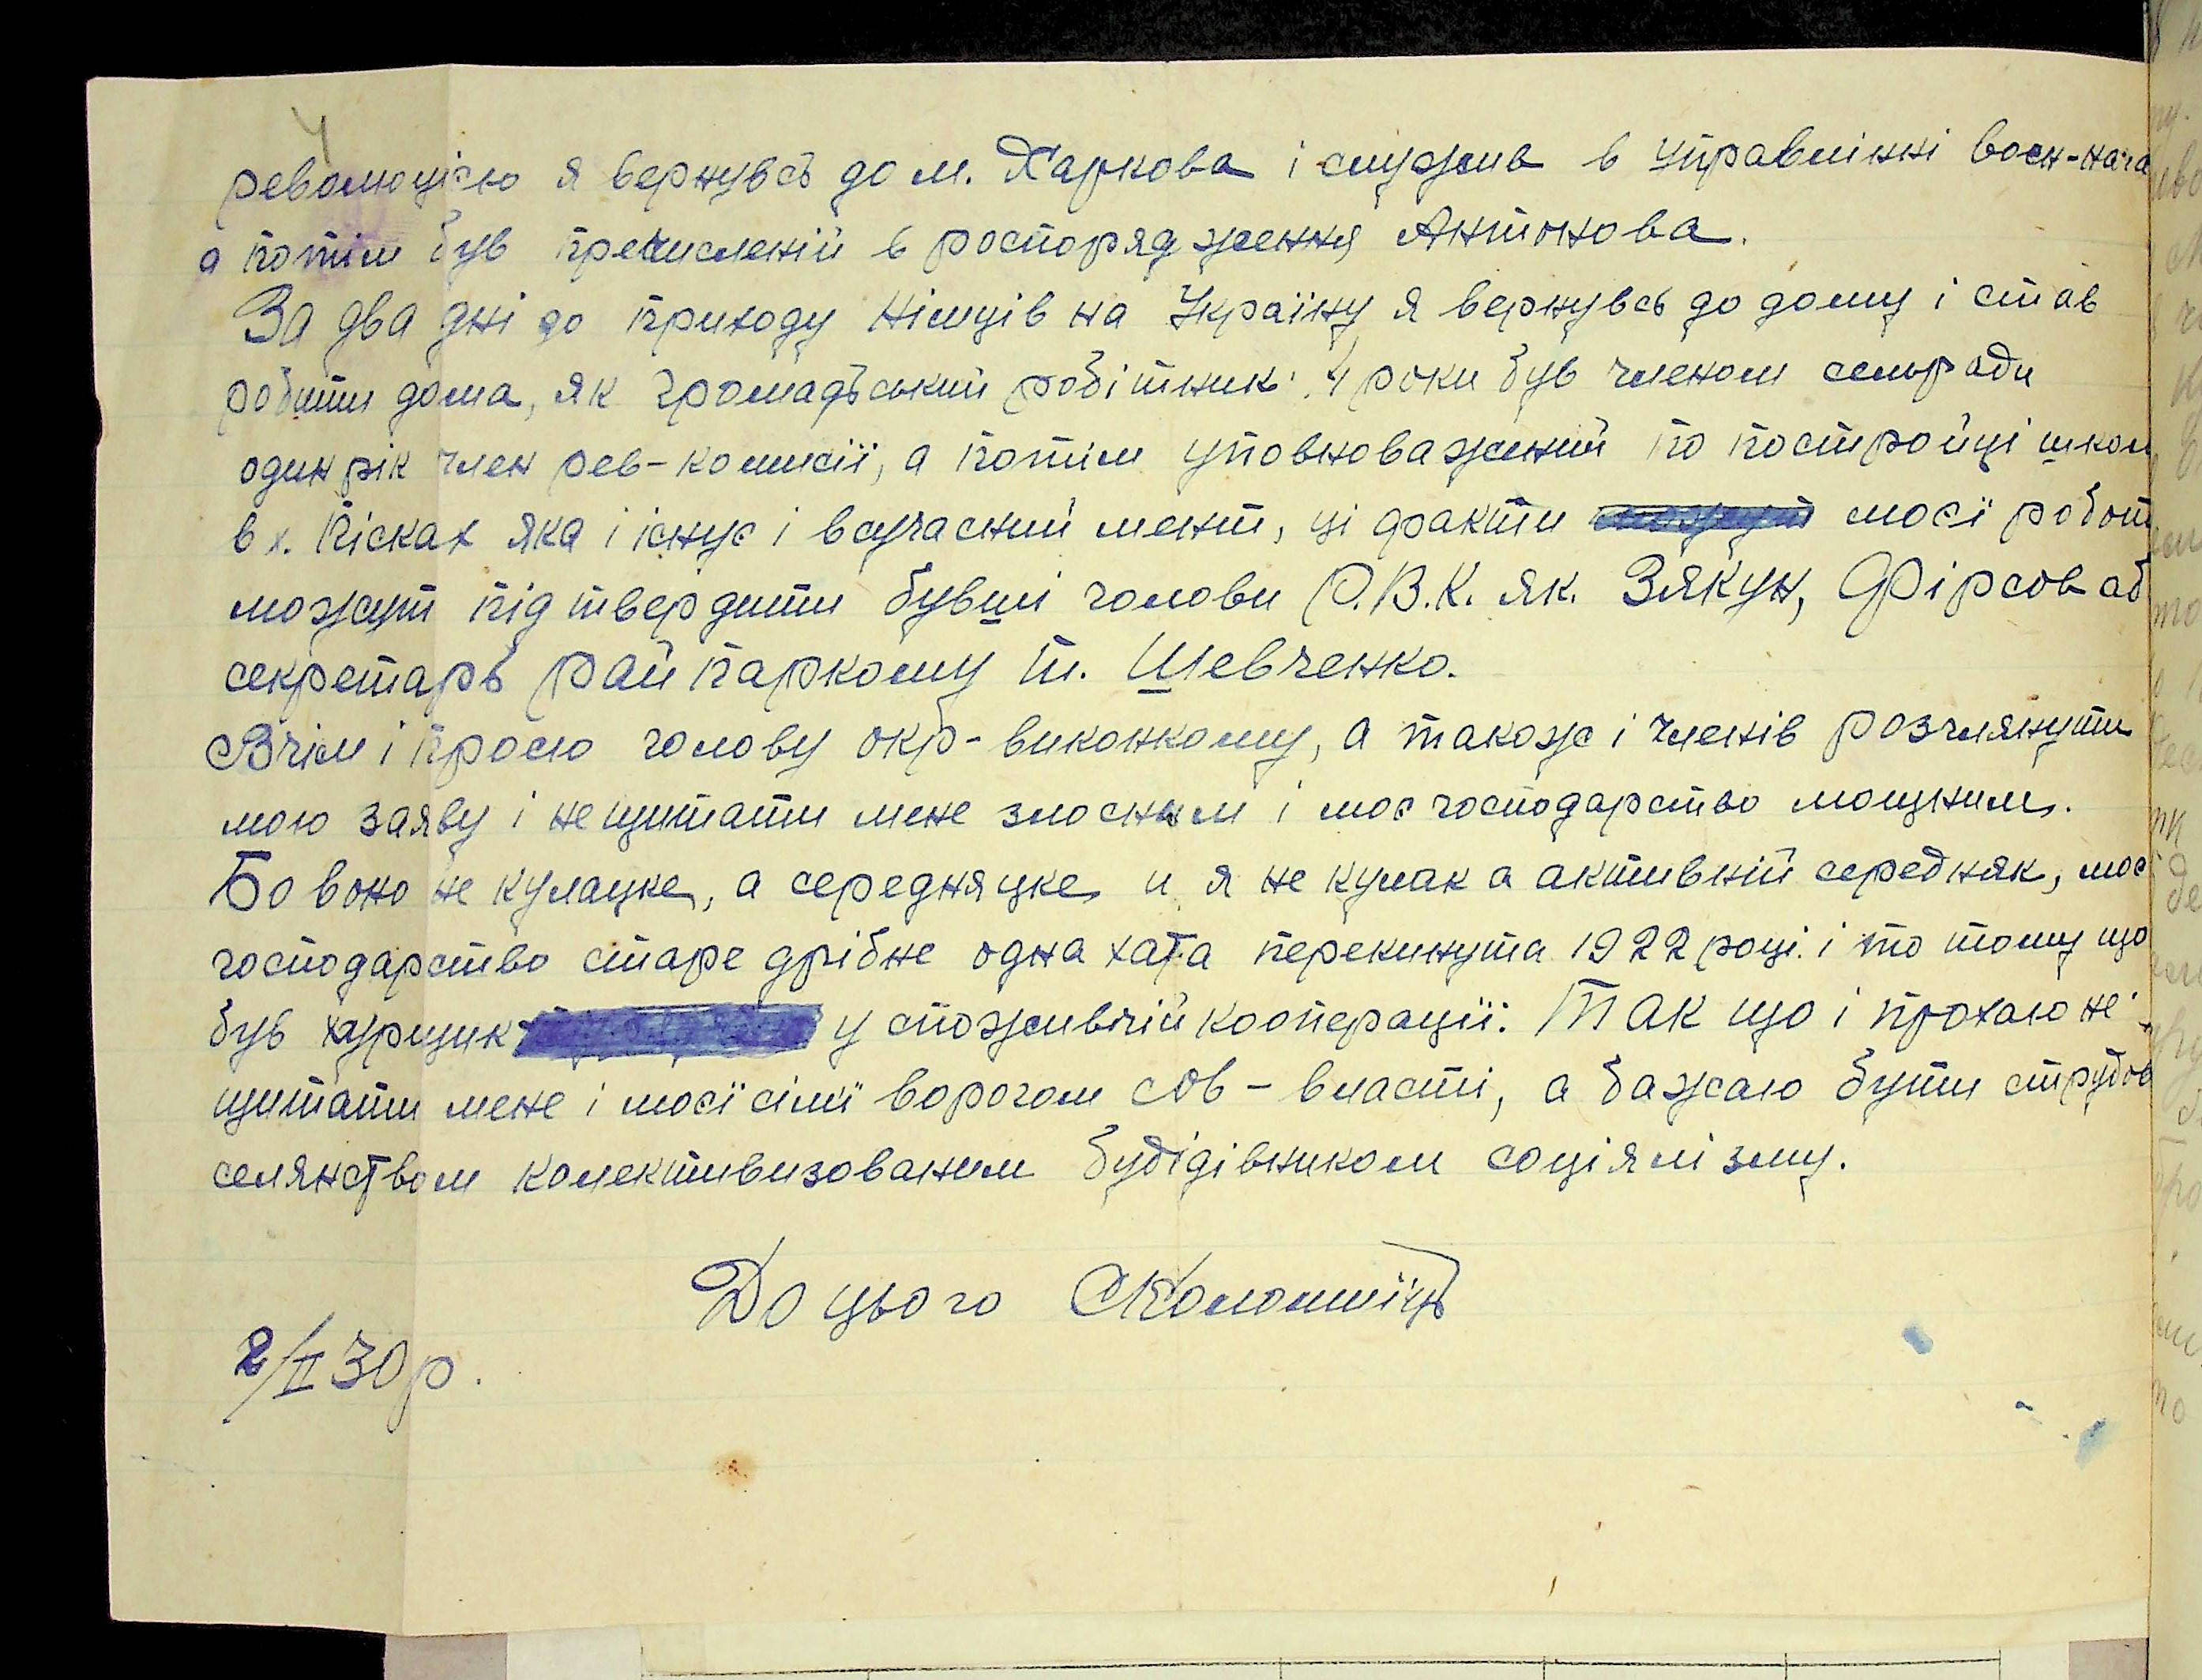 4
революцією я вернувсь до м. Харкова і служив в управлінні воєн-нача
а потім був пречисленій в роспорядження Антонова.
За два дні до приходу німців на Україну я вернувсь до дому і став
робити дома, як громадський робітник: 4 роки був членом сельради
один рік член рев-комисії, а потім уповноважений по постройці школ
в х. Пісках яка і існує і всучасний мент, ці факти моєї робот
можут підтвердити бувші голови Р.В.К. як. Зякун, Фірсов аб
секретарь райпаркому т. Шевченко.
Вчім і просю голову окр-виконкому, а також і членів розглянути
мою заяву і не щитати мене злосним і моє господарство мощним.
Бо воно не кулацке, а середняцке и я не кулак а активній середняк, моє
господарство старе дрібне одна хата перекинута 1922 році. і то тому що
був хурщик у споживчій кооперації. Так що і прохаю не
щитати мене і моєї сімї ворогом сов-власті, а бажаю бути струдов
селянством колективизованим будідівником соціялізму.
До цього СКоломиїць
2/II 30р.